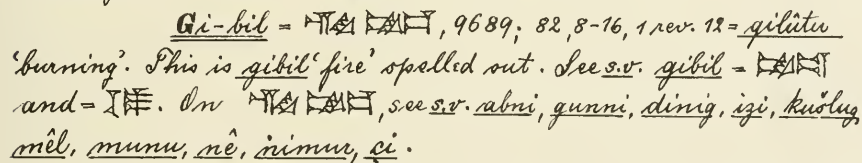 Gi-bil = 𒄀 𒉋, 9689; 82, 8-16, 1 rev. 12 = qilûtu
'burning'. This is gibil 'fire' spelled out. See s.v. gibil =
and = . On , see s.v. abni, gunni, dinig, izi, kušlug,
mêl, munu, nê, nimur, çi.